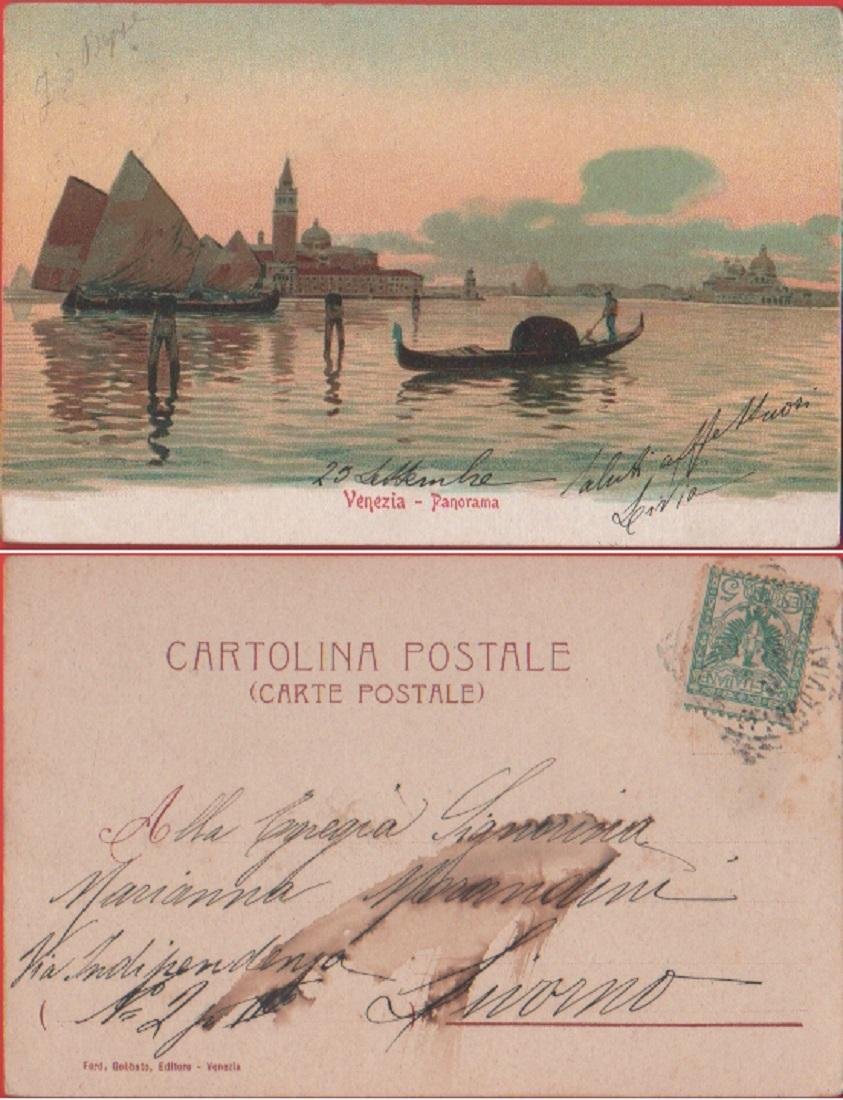 25 Settembre
Saluti affettuosi
Livia
Venezia - Panorama
CARTOLINA POSTALE
(CARTE POSTALE)
POSTE ITALIANE
5
Alla Egregia Signorina
Marianna Morandini
Via Indipendenza
No 2
Livorno
Ferd. Gobbato, Editore - Venezia